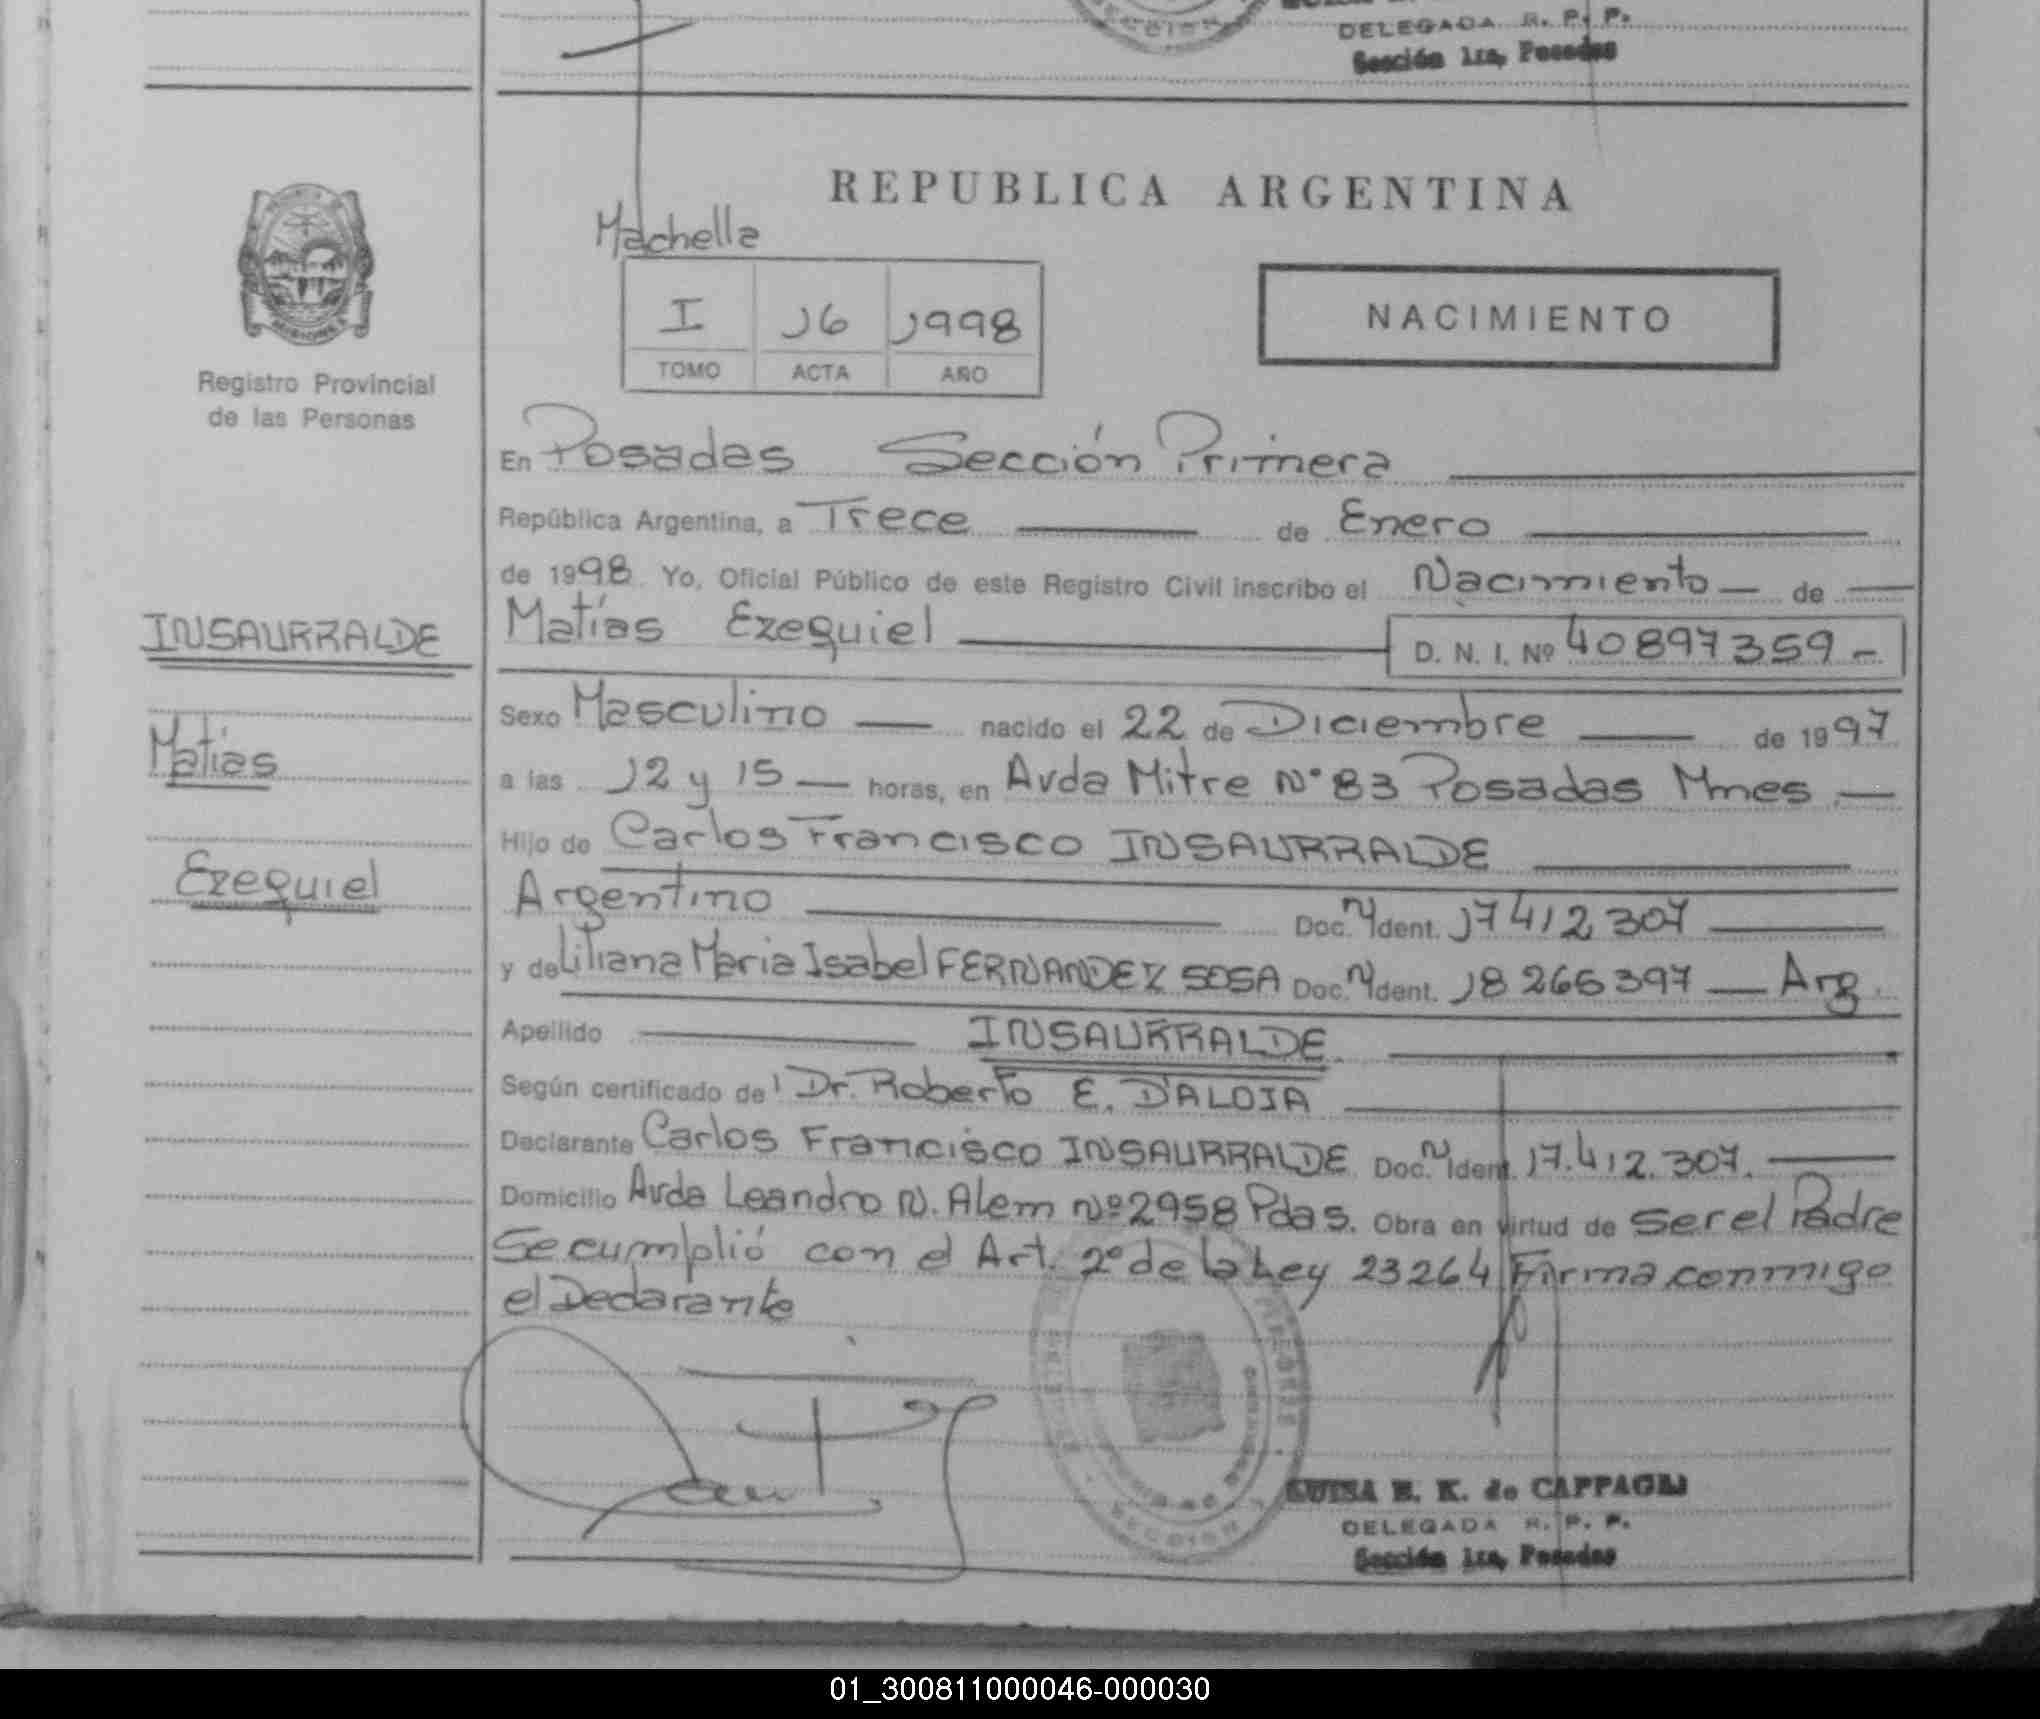 DELEGADA R. P. P.
Sección 1ra, Posadas
REPUBLICA ARGENTINA
Machella
I 16 1998
TOMO ACTA AÑO
NACIMIENTO
Registro Provincial
de las Personas
En Posadas Sección Primera
República Argentina, a Trece de Enero
de 1998 Yo, Oficial Público de este Registro Civil inscribo el Nacimiento de
INSAURRALDE
Matías Ezequiel D. N. I. Nº 40897359
Sexo Masculino nacido el 22 de Diciembre de 1997
Matías
a las 12 y 15 horas, en Avda Mitre Nº 83 Posadas Mnes
Hijo de Carlos Francisco INSAURRALDE
Ezequiel
Argentino Doc. N Ident. 17412307
y de Liliana Maria Isabel FERNANDEZ SOSA Doc. N Ident. 18266397 Arg.
Apellido INSAURRALDE
Según certificado de Dr. Roberto E. D'ALOIA
Declarante Carlos Francisco INSAURRALDE Doc. N Ident. 17.412.307.
Domicilio Avda Leandro N. Alem Nº 2958 Pdas. Obra en virtud de ser el Padre
Se cumplió con el Art. 2º de la Ley 23264 Firma conmigo
el Declarante
LUISA E. K. de CAPPAGLI
DELEGADA R. P. P.
Sección 1ra, Posadas
01_300811000046-000030